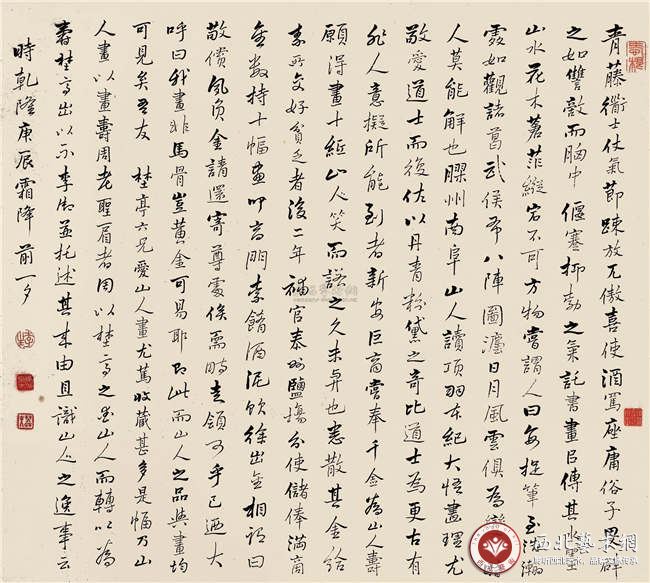 青藤衢士仗氣節疎放兀傲喜使酒罵座庸俗子畏避
之如讐敵而胸中偃塞抑勃之氣託書畫以傳其水墨
山水花木蒼莽縱宕不可方物嘗謂人曰每捉筆至瀚
處如觀諸葛武侯布八陣圖瀍日月風雲俱為
人莫能解也膠州南阜山人讀項羽本紀大悟畫理尤
敬愛道士而後佐以丹青粉黛之奇比道士為更古有
非人意擬所能到者新安巨商嘗奉千金為山人壽
願得畫十紙山人笑而諾之久未與也悉散其金給
素所交好貧乏者後二年補官泰州鹽場分使儲俸滿商
金数持十幅畫叩商門李餚酒泥飲徐出金相謂曰
敬償夙負金請還寄尊處俟需時走領可乎已迺大
呼曰我畫非馬骨豈黃金可易耶即此而山人之品與畫均
可見矣吾友埜亭六兄愛山人畫尤篤收藏甚多是幅乃山
人畫以畫壽周老聖眉者周以埜亭之愛山人而轉以為
壽埜亭出以示李御並托述其來由且識山人之逸事云
時乾隆庚辰霜降前一夕
西北藝术網